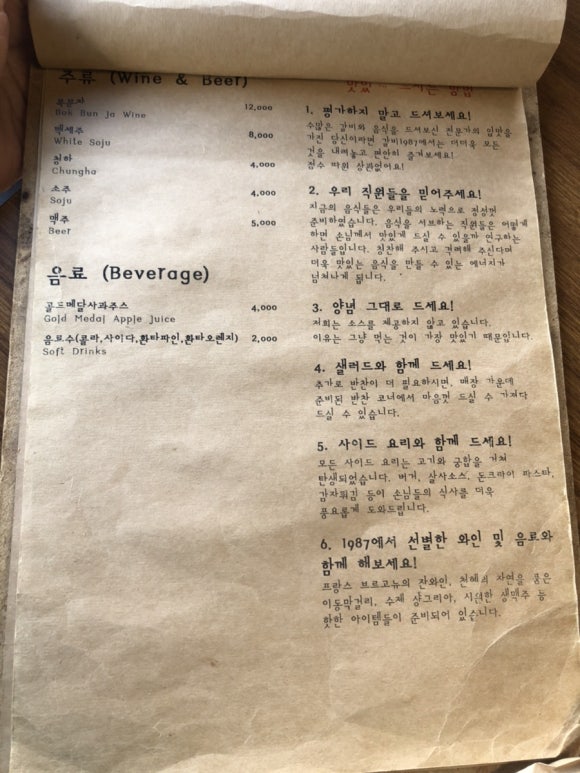 주류 (Wine & Beer)
복분자 12,000
Bok Bun Ja Wine
백세주 8,000
White Soju
청하 4,000
Chungha
소주 4,000
Soju
맥주 5,000
Beer
음료 (Beverage)
골드메달사과주스 4,000
Gold Medal Apple Juice
음료수(콜라,사이다,환타파인,환타오렌지) 2,000
Soft Drinks
맛있게 드시는 방법
1. 평가하지 말고 드셔보세요!
수많은 갈비와 음식을 드셔보신 전문가의 입맛을
가진 당신이라면 갈비1987에서는 더더욱 모든
것을 내려놓고 편안히 즐겨보세요!
점수 따윈 상관없어요!
2. 우리 직원들을 믿어주세요!
지금의 음식들은 우리들의 노력으로 정성껏
준비하였습니다. 음식을 서브하는 직원들은 어떻게
하면 손님께서 맛있게 드실 수 있을까 연구하는
사람들입니다. 칭찬해 주시고 격려해 주신다면
더욱 맛있는 음식을 만들 수 있는 에너지가
넘쳐나게 됩니다.
3. 양념 그대로 드세요!
저희는 소스를 제공하지 않고 있습니다.
이유는 그냥 먹는 것이 가장 맛있기 때문입니다.
4. 샐러드와 함께 드세요!
추가로 반찬이 더 필요하시면, 매장 가운데
준비된 반찬 코너에서 마음껏 드실 수 가져다
드실 수 있습니다.
5. 사이드 요리와 함께 드세요!
모든 사이드 요리는 고기와 궁합을 거쳐
탄생되었습니다. 버거, 살사소스, 돈크라이 파스타,
감자튀김 등이 손님들의 식사를 더욱
풍요롭게 도와드립니다.
6. 1987에서 선별한 와인 및 음료와
함께 해보세요!
프랑스 브르고뉴의 잔와인, 천혜의 자연을 품은
이동막걸리, 수제 샹그리아, 시원한 생맥주 등
핫한 아이템들이 준비되어 있습니다.